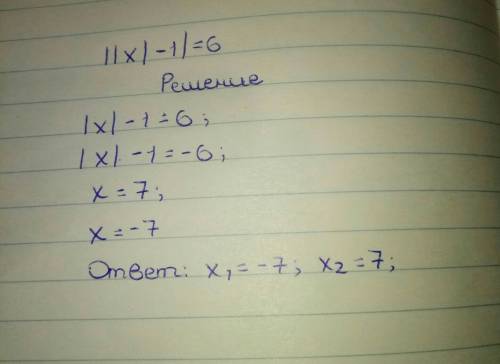 ||x|-1|=6
Решение
|x|-1=6;
|x|-1=-6;
x=7;
x=-7
Ответ: x₁=-7; x₂=7;